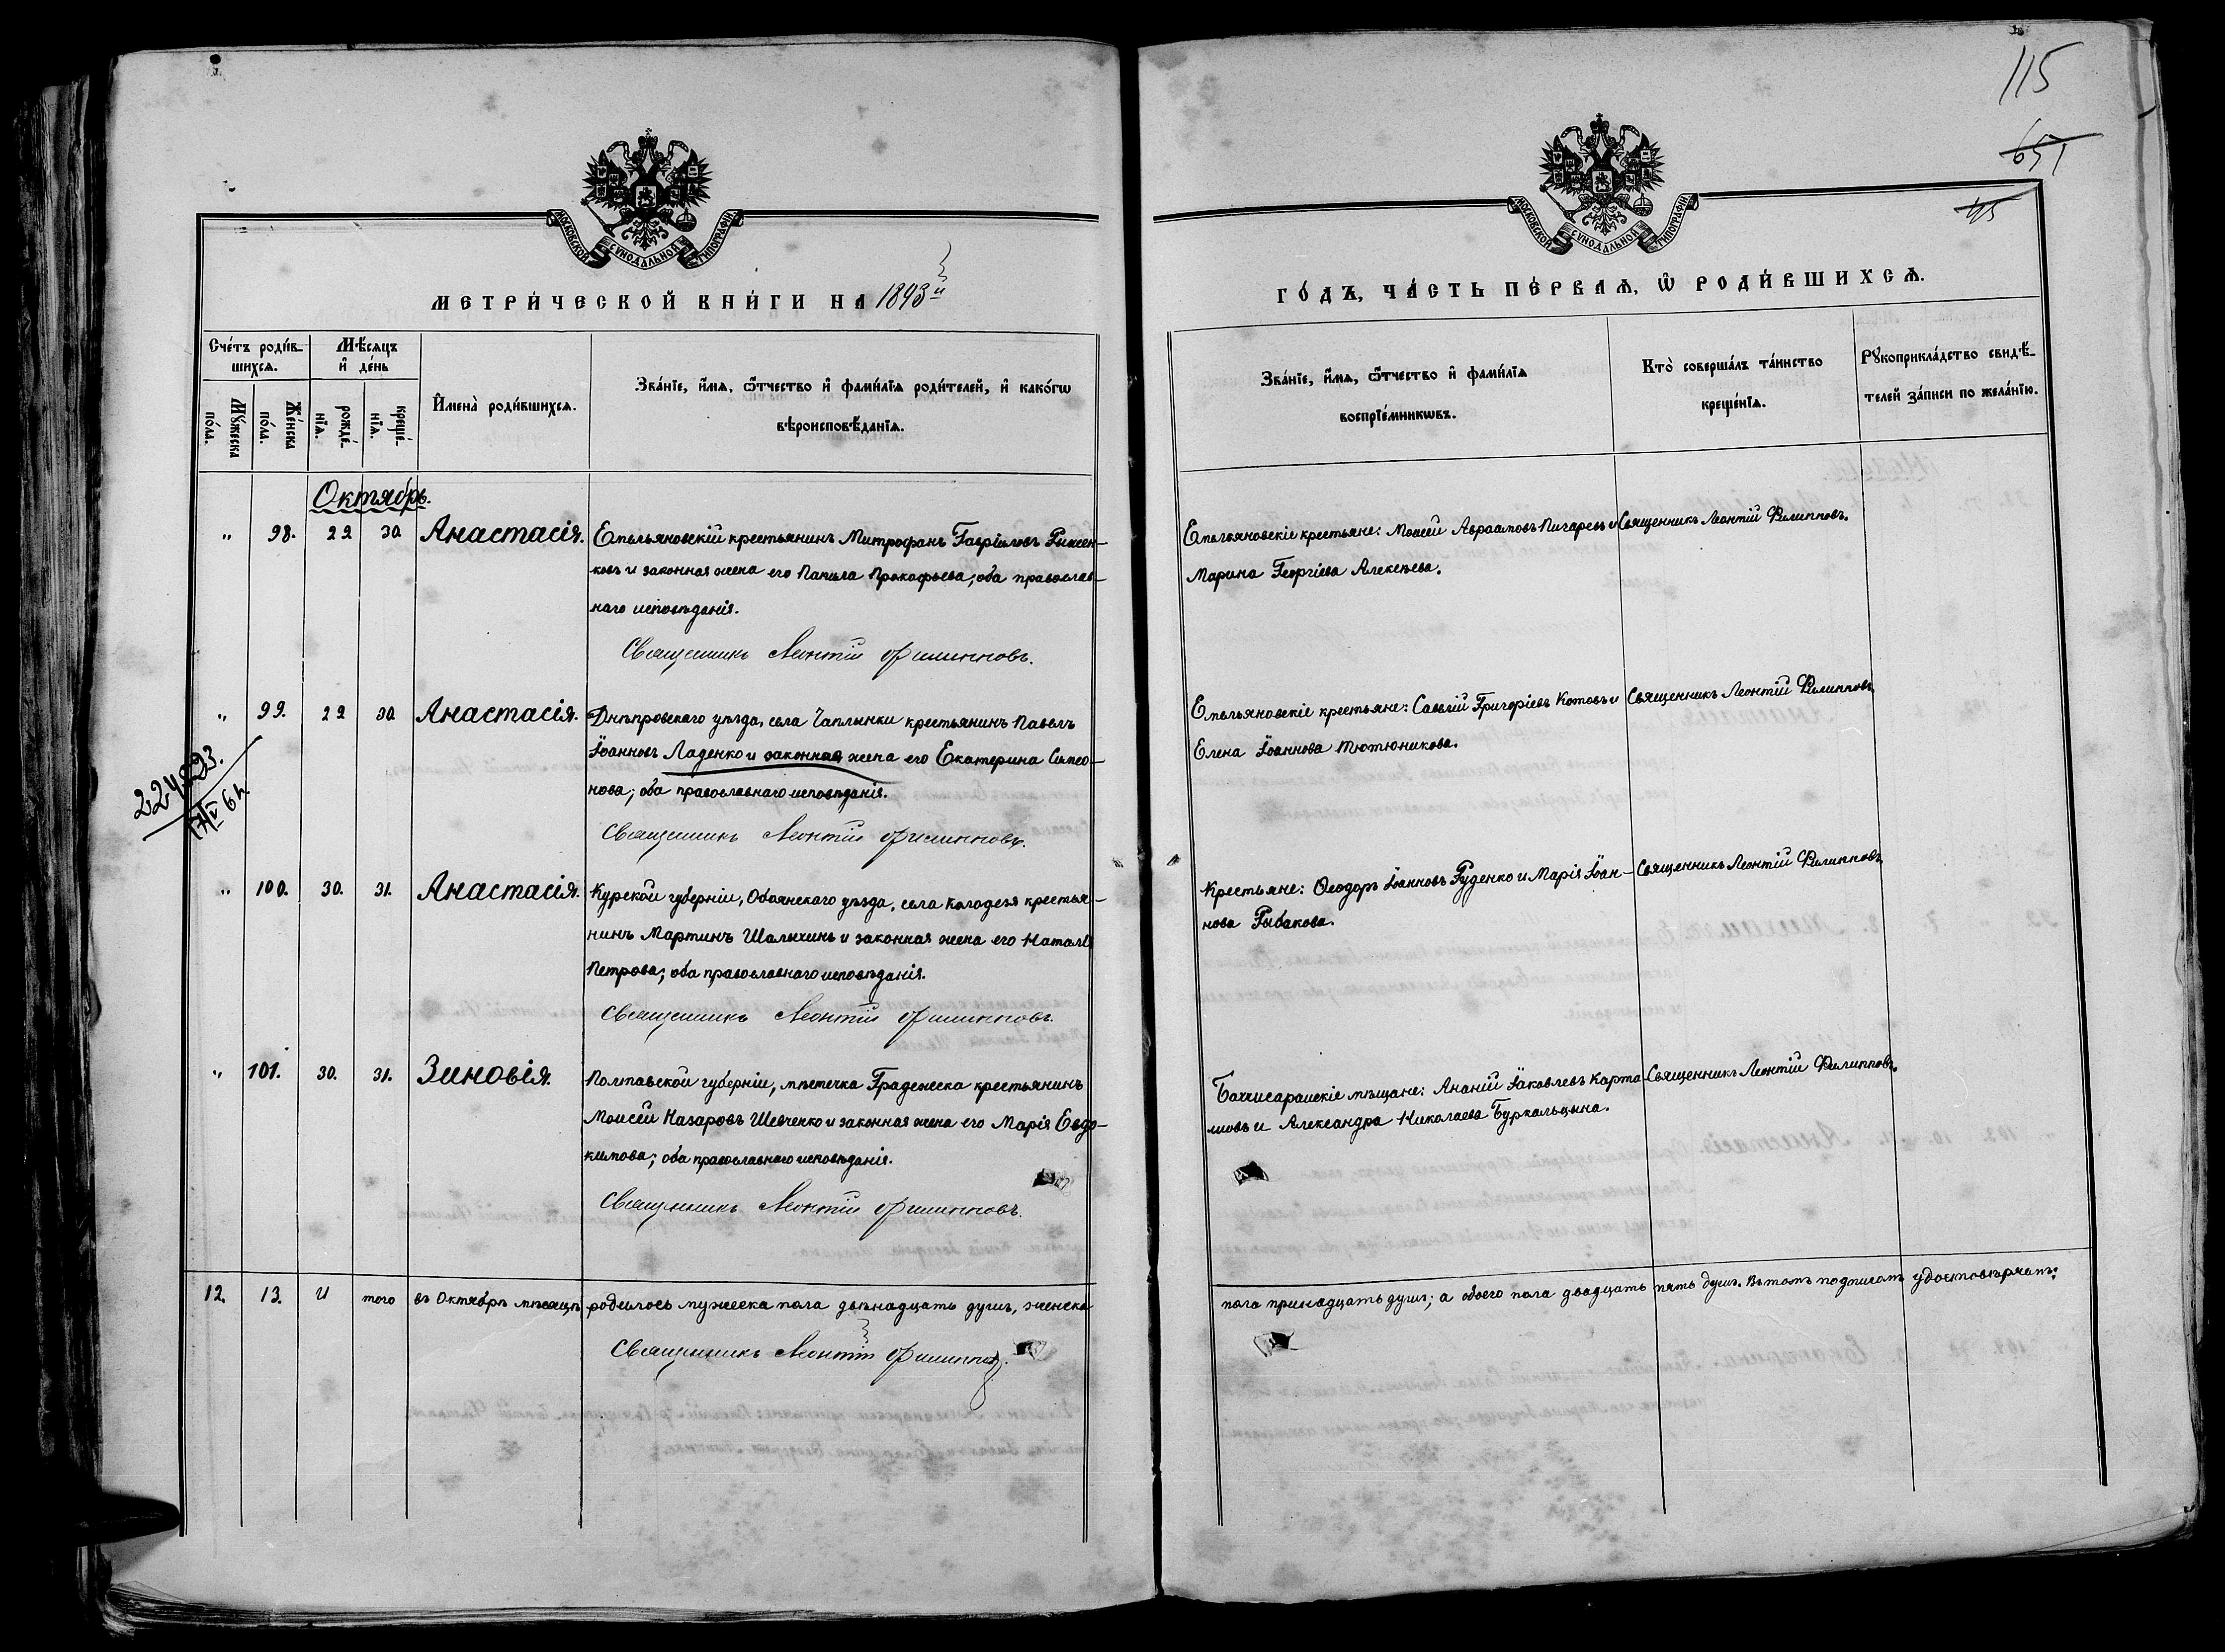 115
651
45
МОСКОВСКОЙ СѴНОДАЛЬНОЙ ТИПОГРАФІИ
МОСКОВСКОЙ СѴНОДАЛЬНОЙ ТИПОГРАФІИ
МЕТРИ́ЧЕСКОЙ КНИ́ГИ НА 1893й
ГО́ДЪ, ЧА́СТЬ ПЕ́РВАѦ, Ѡ҆ РОДИ́ВШИХСѦ.
Сче́тъ роди́в-
шихсѧ.
Мѣ́сѧцъ
и҆ де́нь
Мꙋ́жеска
по́ла.
Же́нска
по́ла.
рожде́-
нїѧ.
креще́-
нїѧ.
И҆мена̀ роди́вшихсѧ.
Зва́нїе, и҆́мѧ, ѻ҆́тчество и҆ фами́лїѧ роди́телей, и҆ како́гѡ
вѣроисповѣ́данїѧ.
Зва́нїе, и҆́мѧ, ѻ҆́тчество и҆ фами́лїѧ
воспрїе́мникѡвъ.
Кто̀ соверша́лъ та́инство
креще́нїѧ.
Рꙋкоприкла́дство свидѣ́-
телей за́писи по жела́нїю.
Октябрь.
" 98. 22 30 Анастасія. Емельяновскій крестьянинъ Митрофанъ Гавріиловъ Рыжен-
ковъ и законная жена его Прокофьева; оба православ-
наго исповѣданія.
Священникъ Леонтій Филипповъ.
Емельяновскіе крестьяне: Моисей Авраамовъ Пичаревъ и
Марина Георгіева Алексѣева.
Священникъ Леонтій Филипповъ.
" 99. 22 30 Анастасія. Днѣпровскаго уѣзда, села Чаплынки крестьянинъ Павелъ
Іоанновъ Ладенко и законная жена его Екатерина Симео-
нова; оба православнаго исповѣданія.
Священникъ Леонтій Филипповъ.
Емельяновскіе крестьяне: Савватій Григоріевъ Котовъ и
Елена Іоаннова Тютюникова.
Священникъ Леонтій Филипповъ.
17/V 64.
" 100. 30. 31. Анастасія. Курской губерніи, Обоянскаго уѣзда, села Колодезя крестья-
нинъ Мартинъ Шалыхинъ и законная жена его Наталія
Петрова; оба православнаго исповѣданія.
Священникъ Леонтій Филипповъ.
Крестьяне: Ѳеодоръ Іоанновъ Руденко и Марія Іоан-
нова Рыбакова.
Священникъ Леонтій Филипповъ.
" 101. 30. 31. Зиновія. Полтавской губерніи, мѣстечка Градижска крестьянинъ
Моисей Назаровъ Шевченко и законная жена его Марія Евдо-
кимова; оба православнаго исповѣданія.
Священникъ Леонтій Филипповъ.
Бахчисарайскіе мѣщане: Ананій Іаковлевъ Карта-
шовъ и Александра Николаева Буркальцына.
Священникъ Леонтій Филипповъ.
12. 13. И того въ Октябрѣ мѣсяцѣ родилось мужеска пола двѣнадцать душъ, женска
пола тринадцать душъ; а обоего пола двадцать пять душъ. Въ томъ подписомъ удостовѣряетъ:
Священникъ Леонтій Филипповъ.